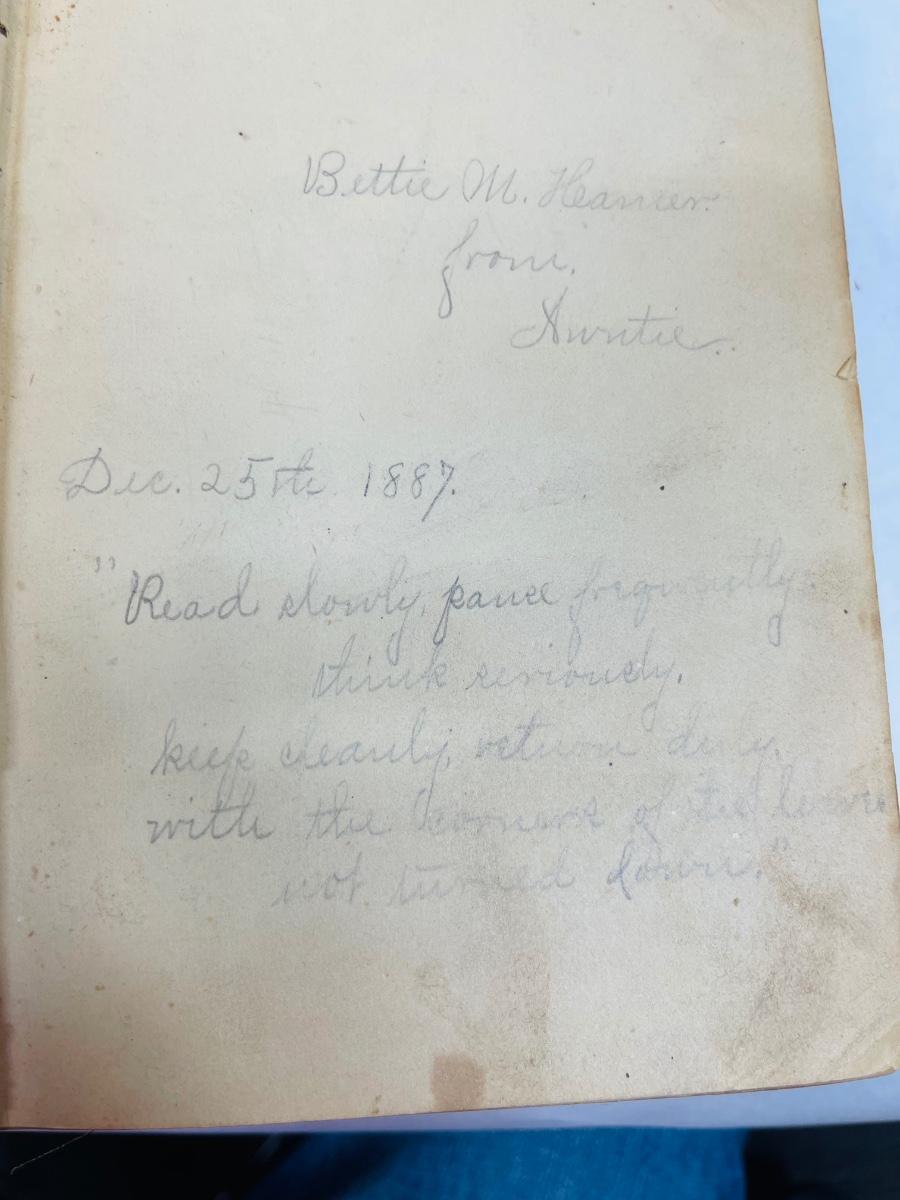 Bettie M. Hamner.
from.
Auntie.
Dec. 25th 1887.
"Read slowly, pause frequently,
think seriously,
keep cleanly, return duly,
with the corners of the leaves
not turned down."